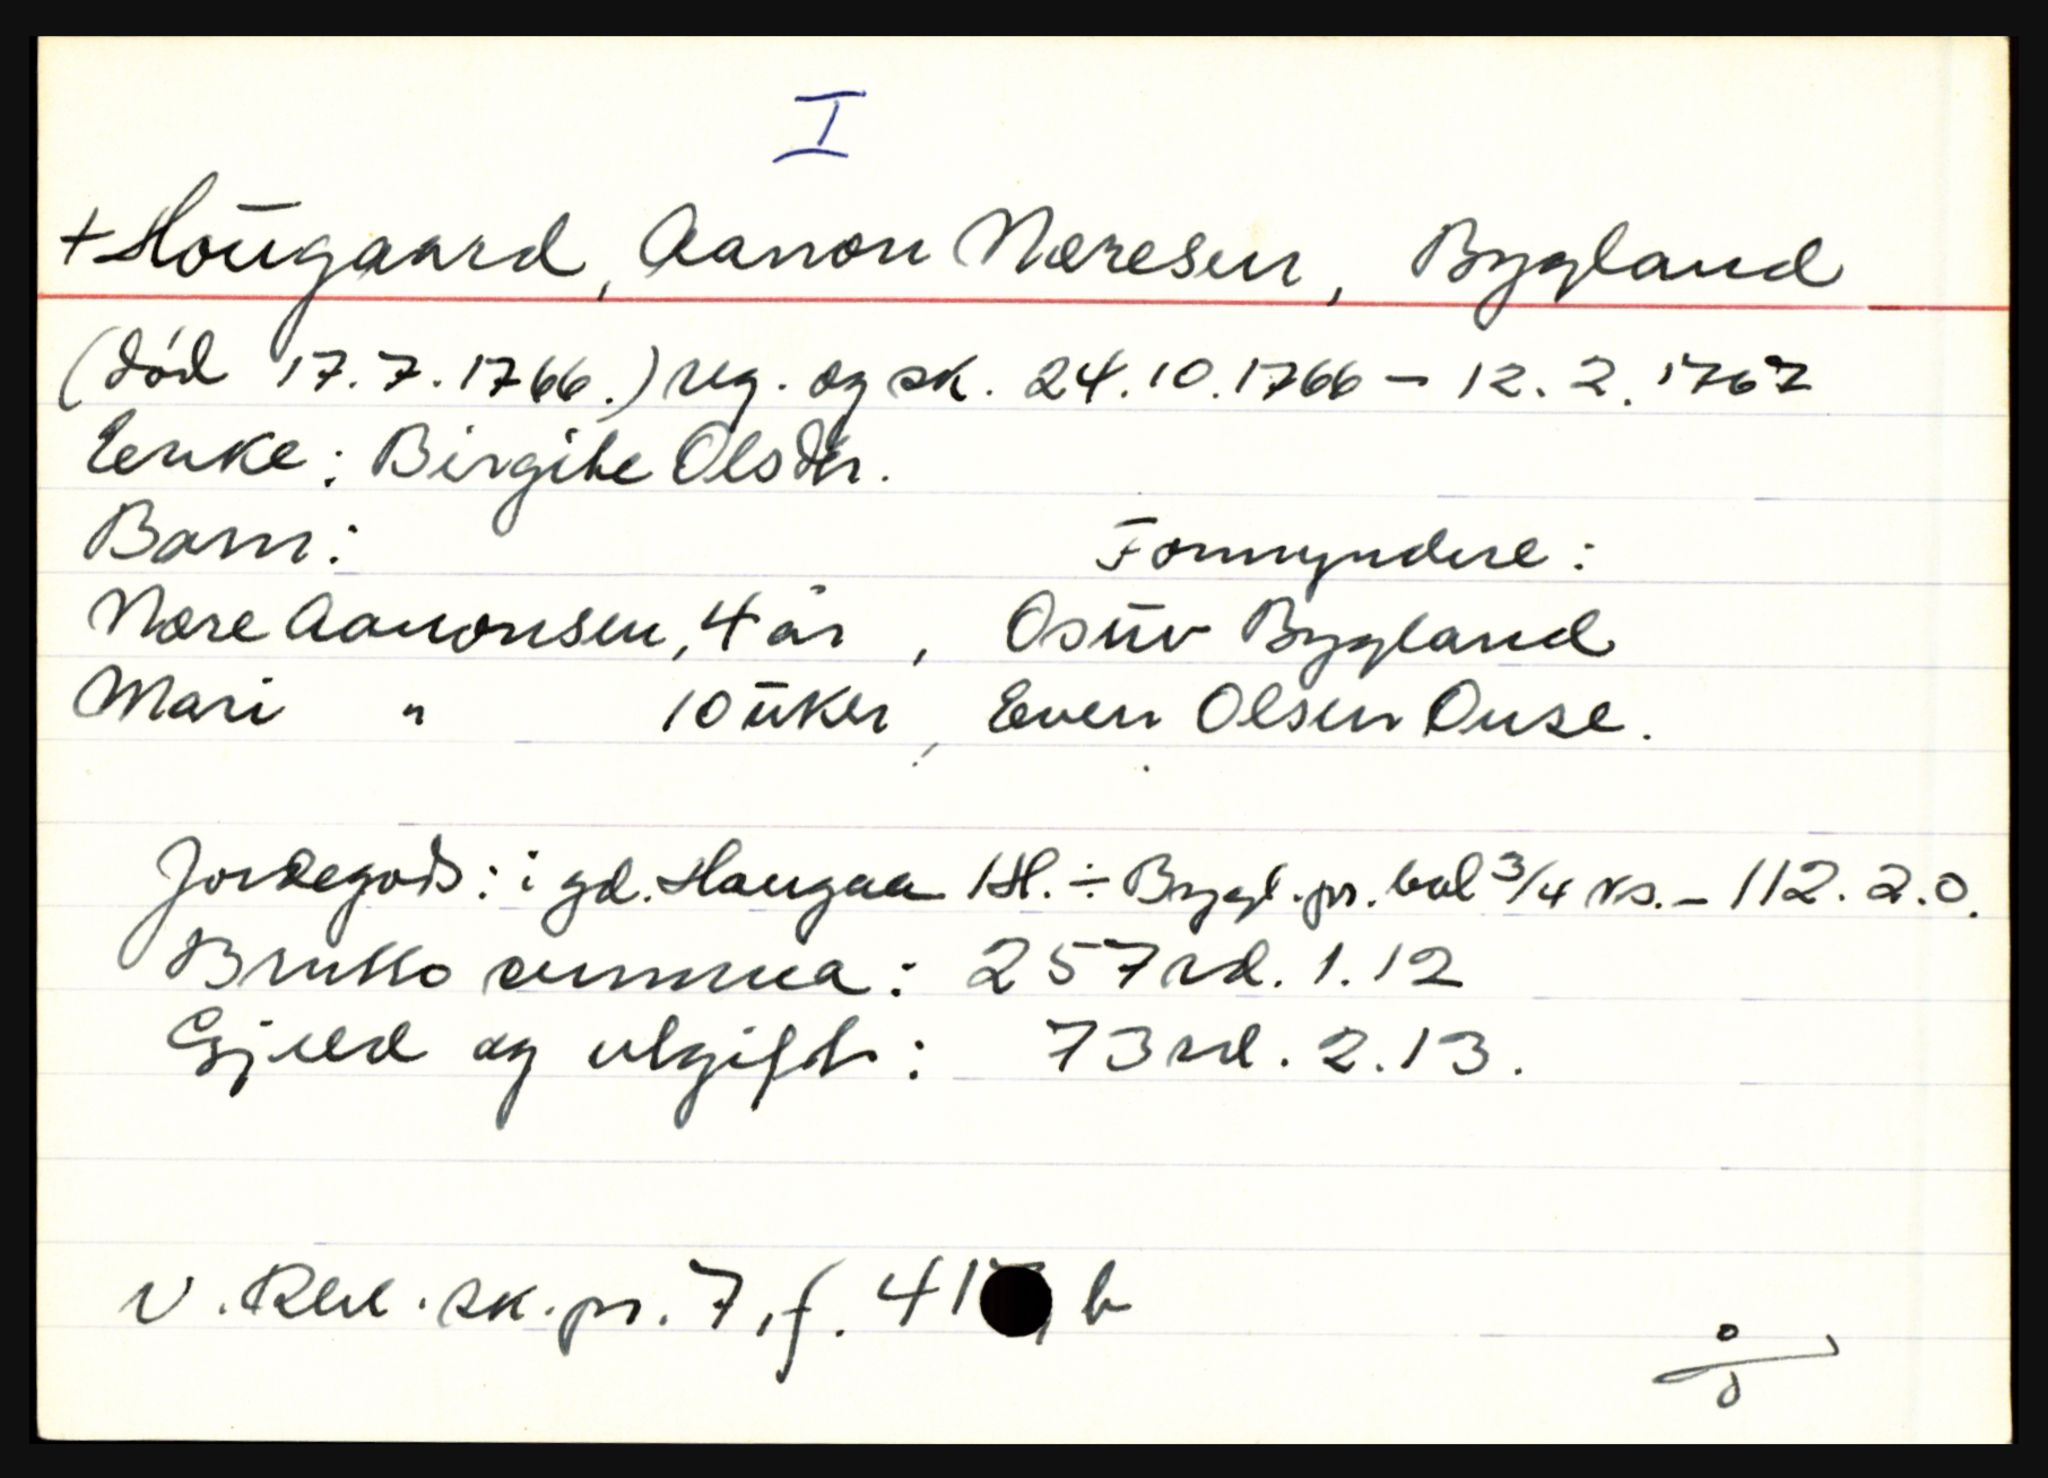 I
+ Hoūgaard, Aanon Næresen, Bygland
(død 17.7.1766.) reg. og sk. 24.10.1766 – 12.2.1767
Enke: Birgite Olsdtr.
Barn: Formyndere:
Nære Aanonsen, 4 år, Osūv Bygland
Mari " 10 ūker, Even Olsen Ouse.
Jordegods: i gd. Haugaa 1 H. ÷ Bygl. pr. bol 3/4 ks. – 112.2.0.
Brutto summa: 257 rd. 1.12
Gjeld og utgift: 73 rd. 2.13.
V. Rbl. sk. pr. 7, f. 417, b